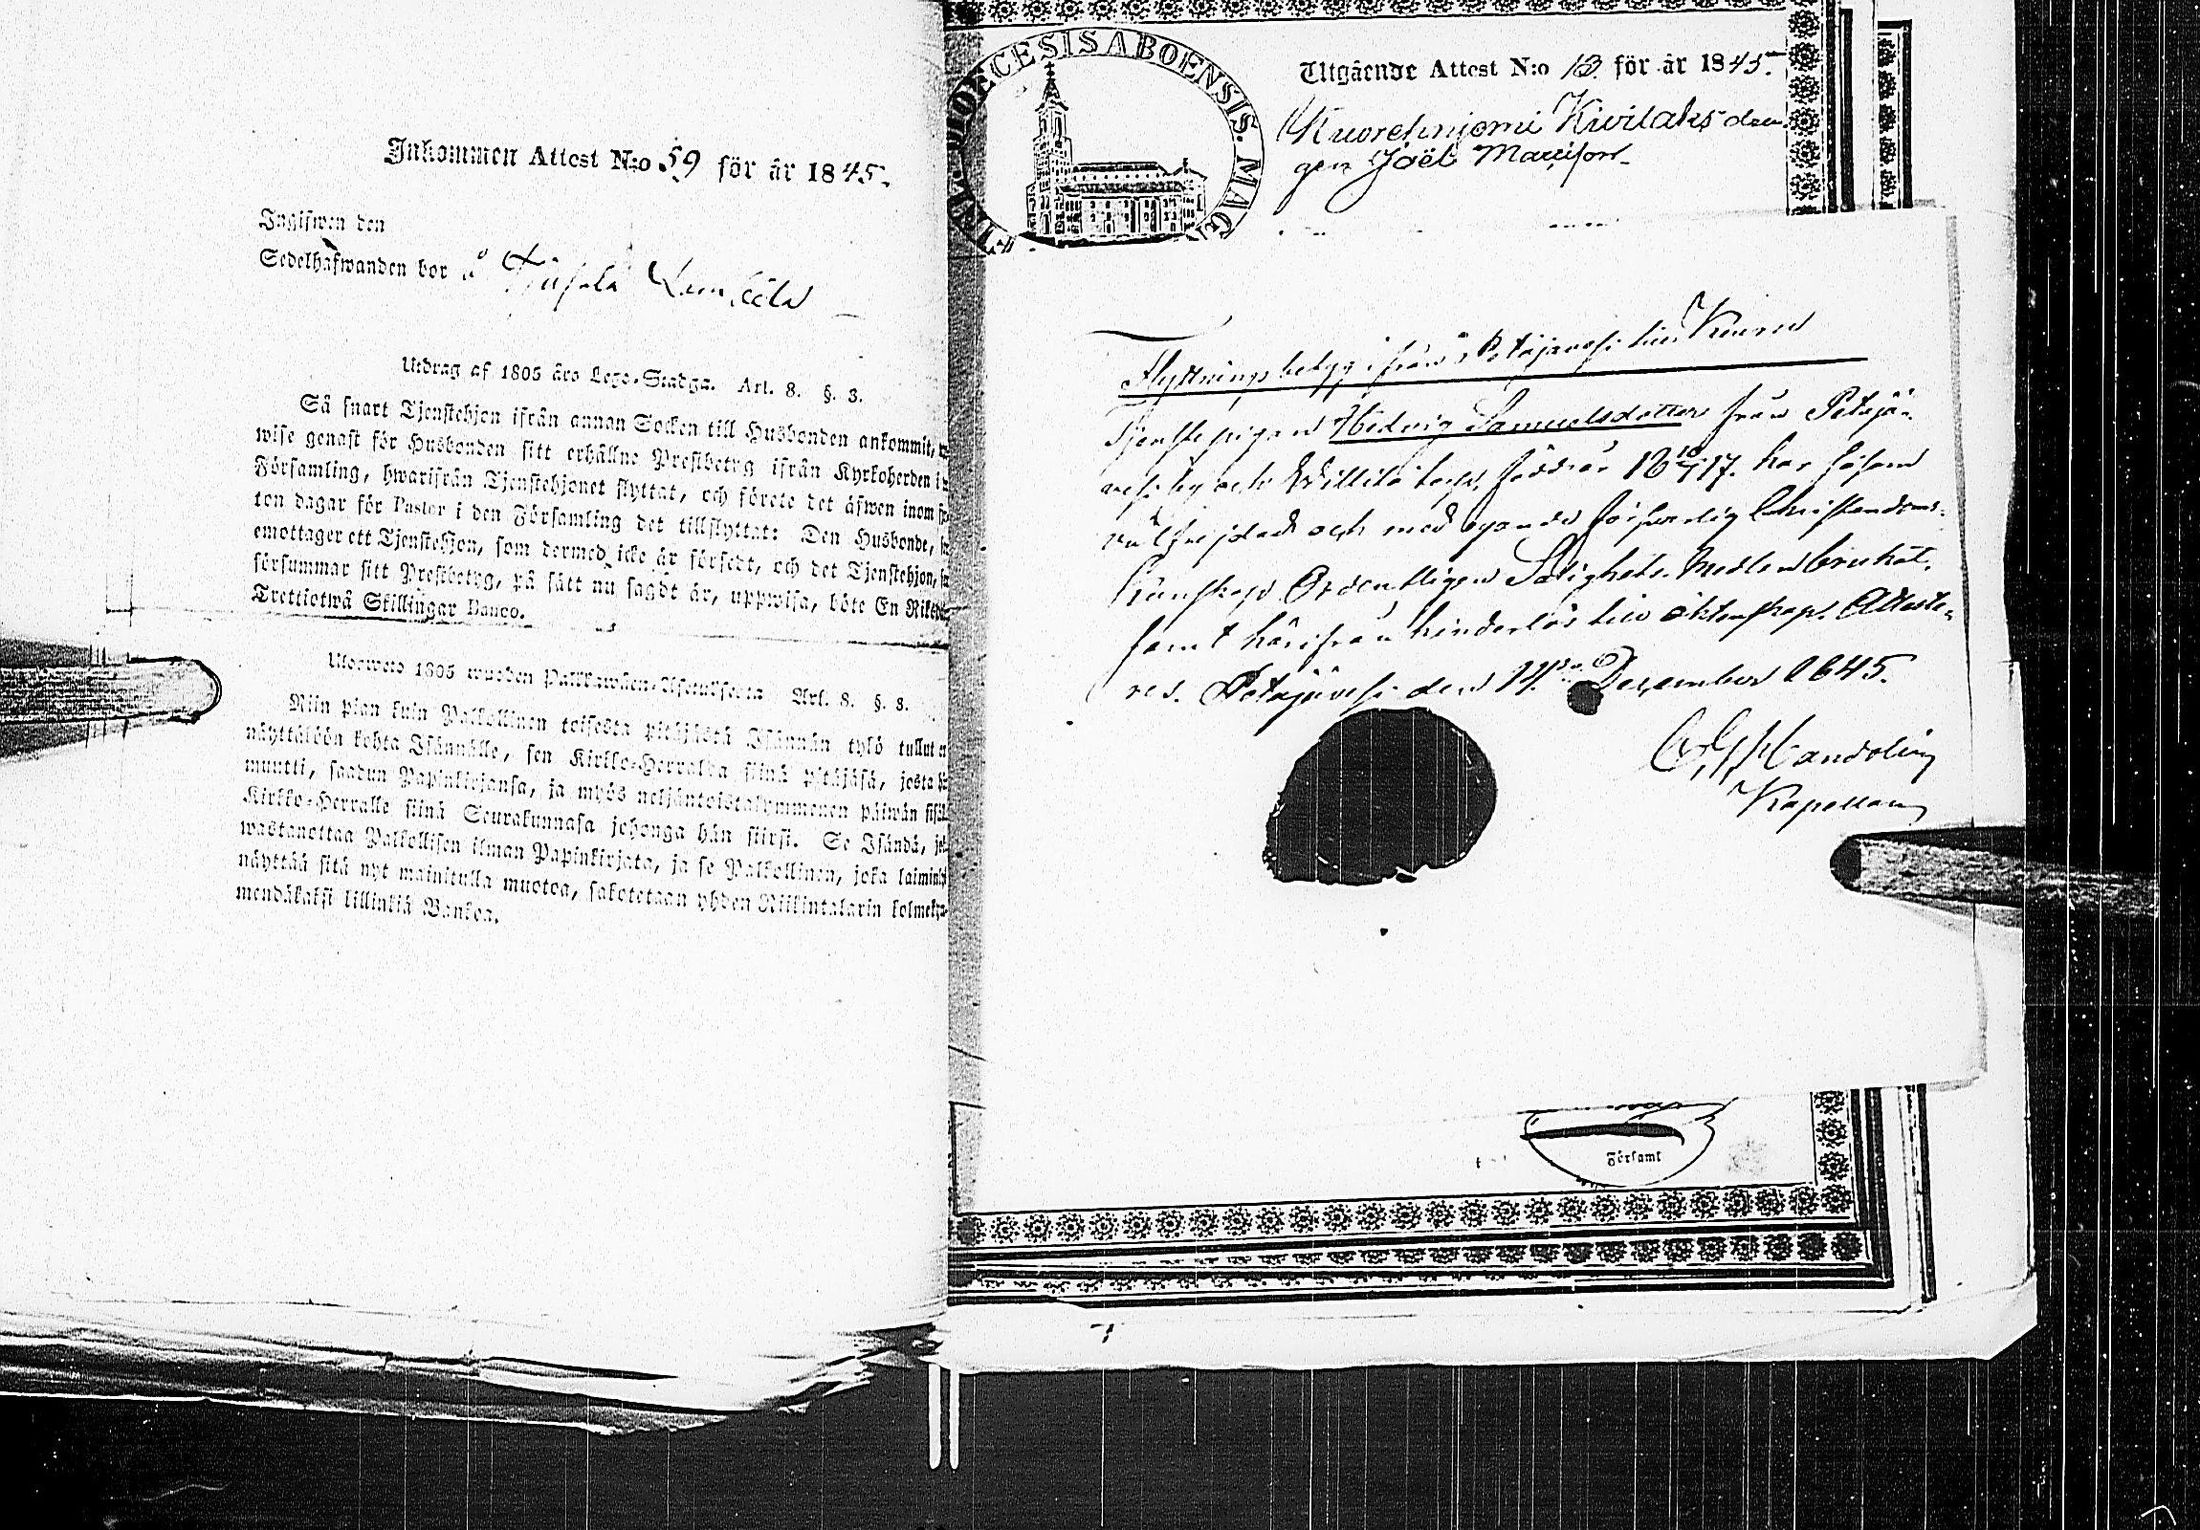 Inkommen Attest N:o 59 för år 1845.
Ingifwen den
Sedelhafwanden bor å
Utdrag af 1805 års Lego-Stadga. Art. 8. §. 3.
Så snart Tjenstehjon ifrån annan Socken till Husbonden ankommit,
wise genast för Husbonden sitt erhållne Prestbetyg ifrån Kyrkoherden i
Församling, hwarifrån Tjenstehjonet flyttat, och förete det äfwen inom
ton dagar för Pastor i den Församling det tillflyttat: Den Husbonde,
emottager ett Tjenstehjon, som dermed icke är försedt, och det Tjenstehjon,
försummar sitt Prestbetyg, på sätt nu sagdt är, uppwisa, böte En
Trettiotwå Skillingar Banco.
1805 wuoden Art. 8. §. 3.
Niin pian kuin Palkollinen toisesta pitäjästä Isännän tykö tullut
näyttäköön kohta Isännälle, sen Kirkko-Herralda siinä pitäjäsä, josta
muutti, saadun Papinkirjansa, ja myös neljäntoistakymmenen päiwän
Kirkko-Herralle siinä Seurakunnasa johonga hän siirsi. Se Isändä,
wastanottaa Palkollisen ilman Papinkirjata, ja se Palkollinen, joka
näyttää sitä nyt mainitulla muotoa, sakotetaan yhden Riikintalarin
mendäkaksi killinkiä Bankoa.
DIOECESIS ABOENSIS. MAG
Utgående Attest N:o 13 för år 1845.
Kuorehniemi Kivilaks
Joël
Flyttningsbetyg ifrån Petäjävesi till Keuru
Tjenstepigan Hedvig Samuelsdotter från Petäjä-
vesi by och född år 1817. har såsom
välfrejdad och med egande försvarlig Christendoms-
kunskap Ordentligen Salighets Medlen brukat,
samt härifrån hinderlös till äktenskap. Atteste-
res. Petäjävesi den 14 December 1845.
Kapellan
Församl